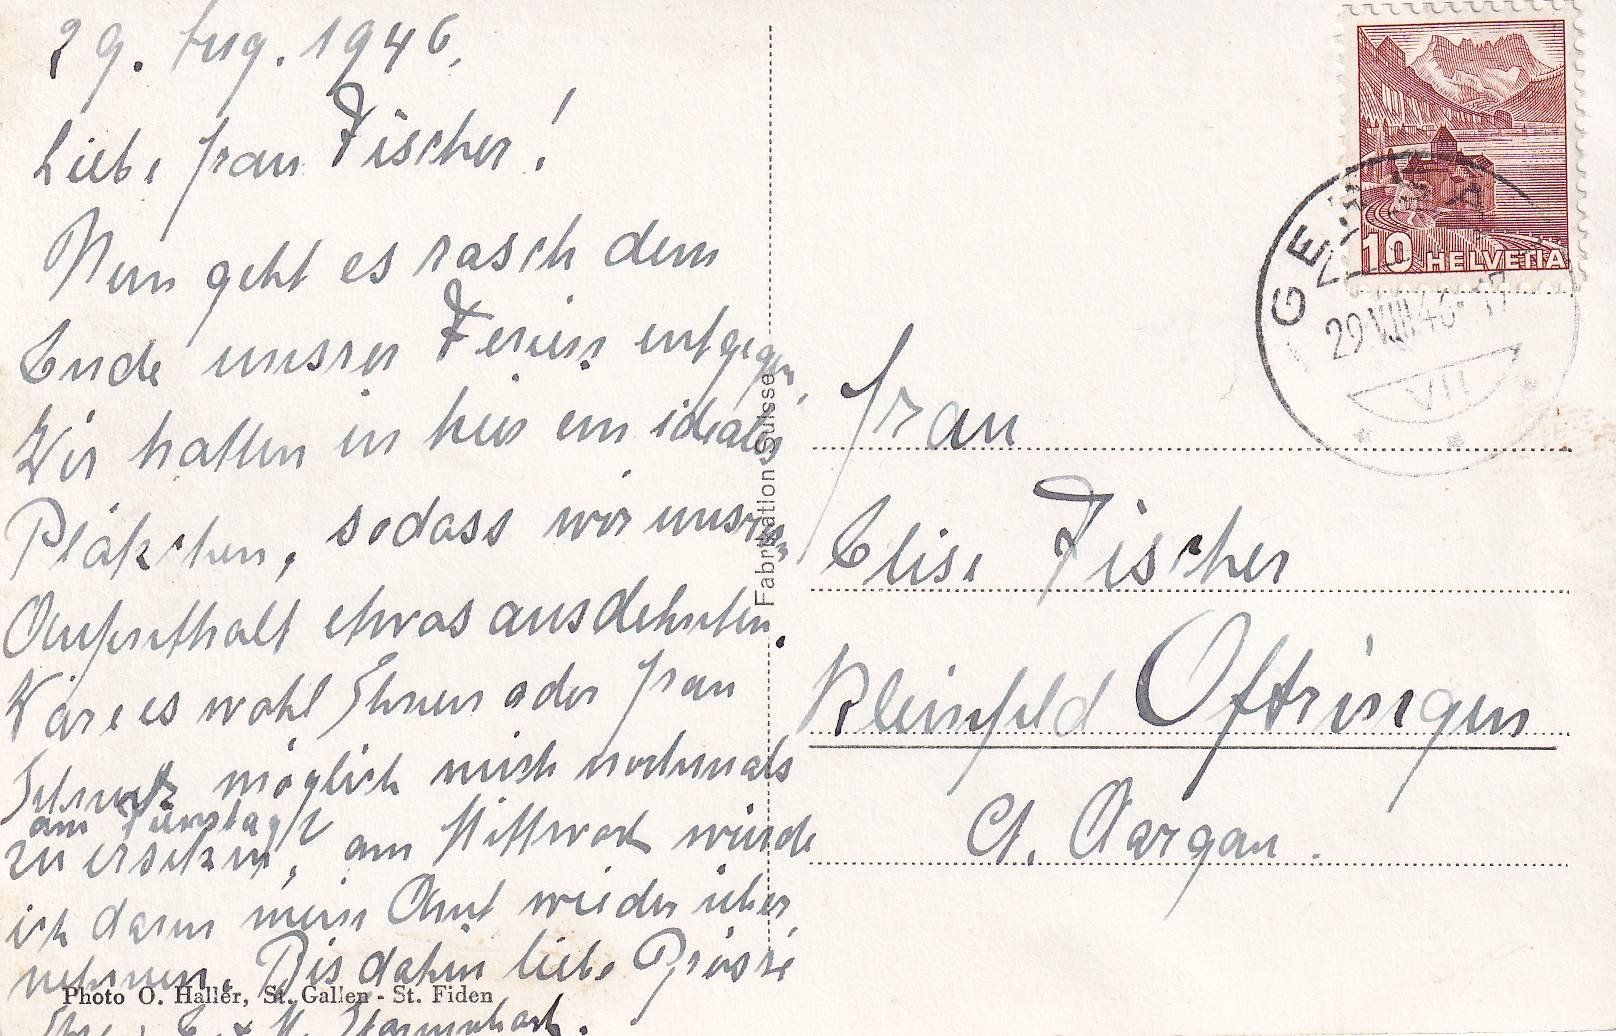 29. Aug. 1946.
Liebe Frau Fischer!
Nun geht es rasch dem
Ende unsrer Ferien entgegen.
Wir hatten in hier ein ideales
Pläzchen, sodass wir unsren
Aufenthalt etwas ausdehnten.
Wäre es wohl Ihnen oder Frau
möglich mich nochmals
am Dinstag
zu ersetzen, am Mittwoch würde
ich dann mein Amt wieder über
nehmen. Bis dahin liebe Grüsse
Ihre
Photo O. Haller, St. Gallen - St. Fiden
Fabrikation Suisse
10 HELVETIA
29.VIII.46-17
VII
Frau
Elise Fischer
Kleinfeld Oftringen
Ct. Aargau.